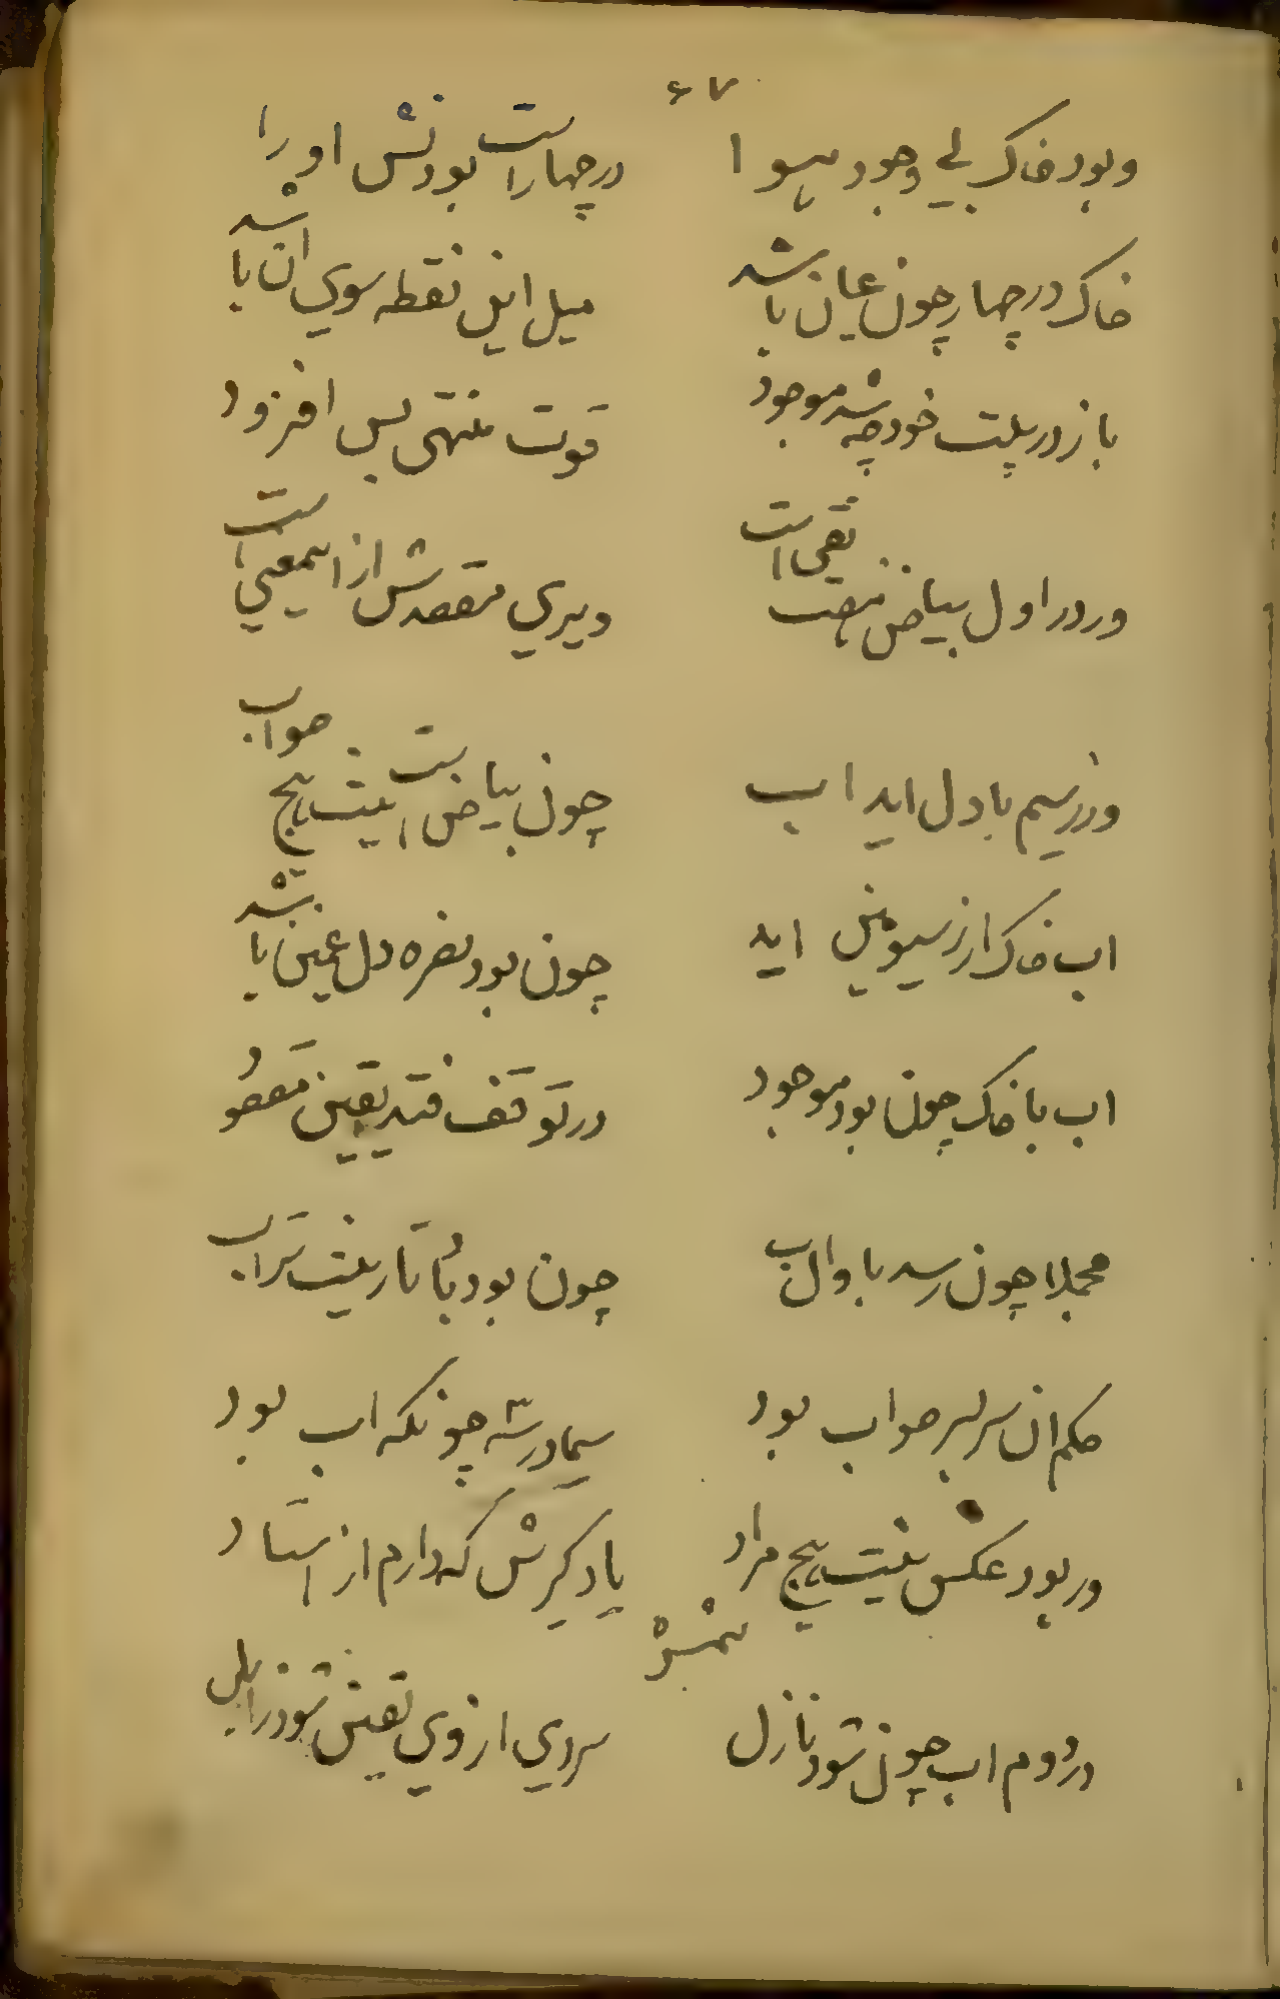 ۶۷
وبود خاک بی وجود هوا
در چهار است بودنش او را
خاک در چهار چون عیان باشد
میل این نقطه سوی ان باشد
باز در پلت خود چه شد موجود
قوت منتهی بس افزود
ور در اول بیاض نفی است
ویری مقصدش از اسمعنی است
ورزسیم با دل اید اب
چون بیاض است نیست هیچ صواب
اب خاک ار ز سیومین اید
چون بود نصره دل غمین باشد
اب با خاک چون بود موجود
در توقف فتد یقین مقصود
مجملا چون رسد باول اب
چون بود با نار نیست تراب
حکم ان سربسر صواب بود
سیما در سه چونکه اب بود
ور بود عکس نیست هیچ مراد
یاد گیرش که دارم از استاد
در دوم اب چون شود نازل
سردی از وی یقین شود زایل